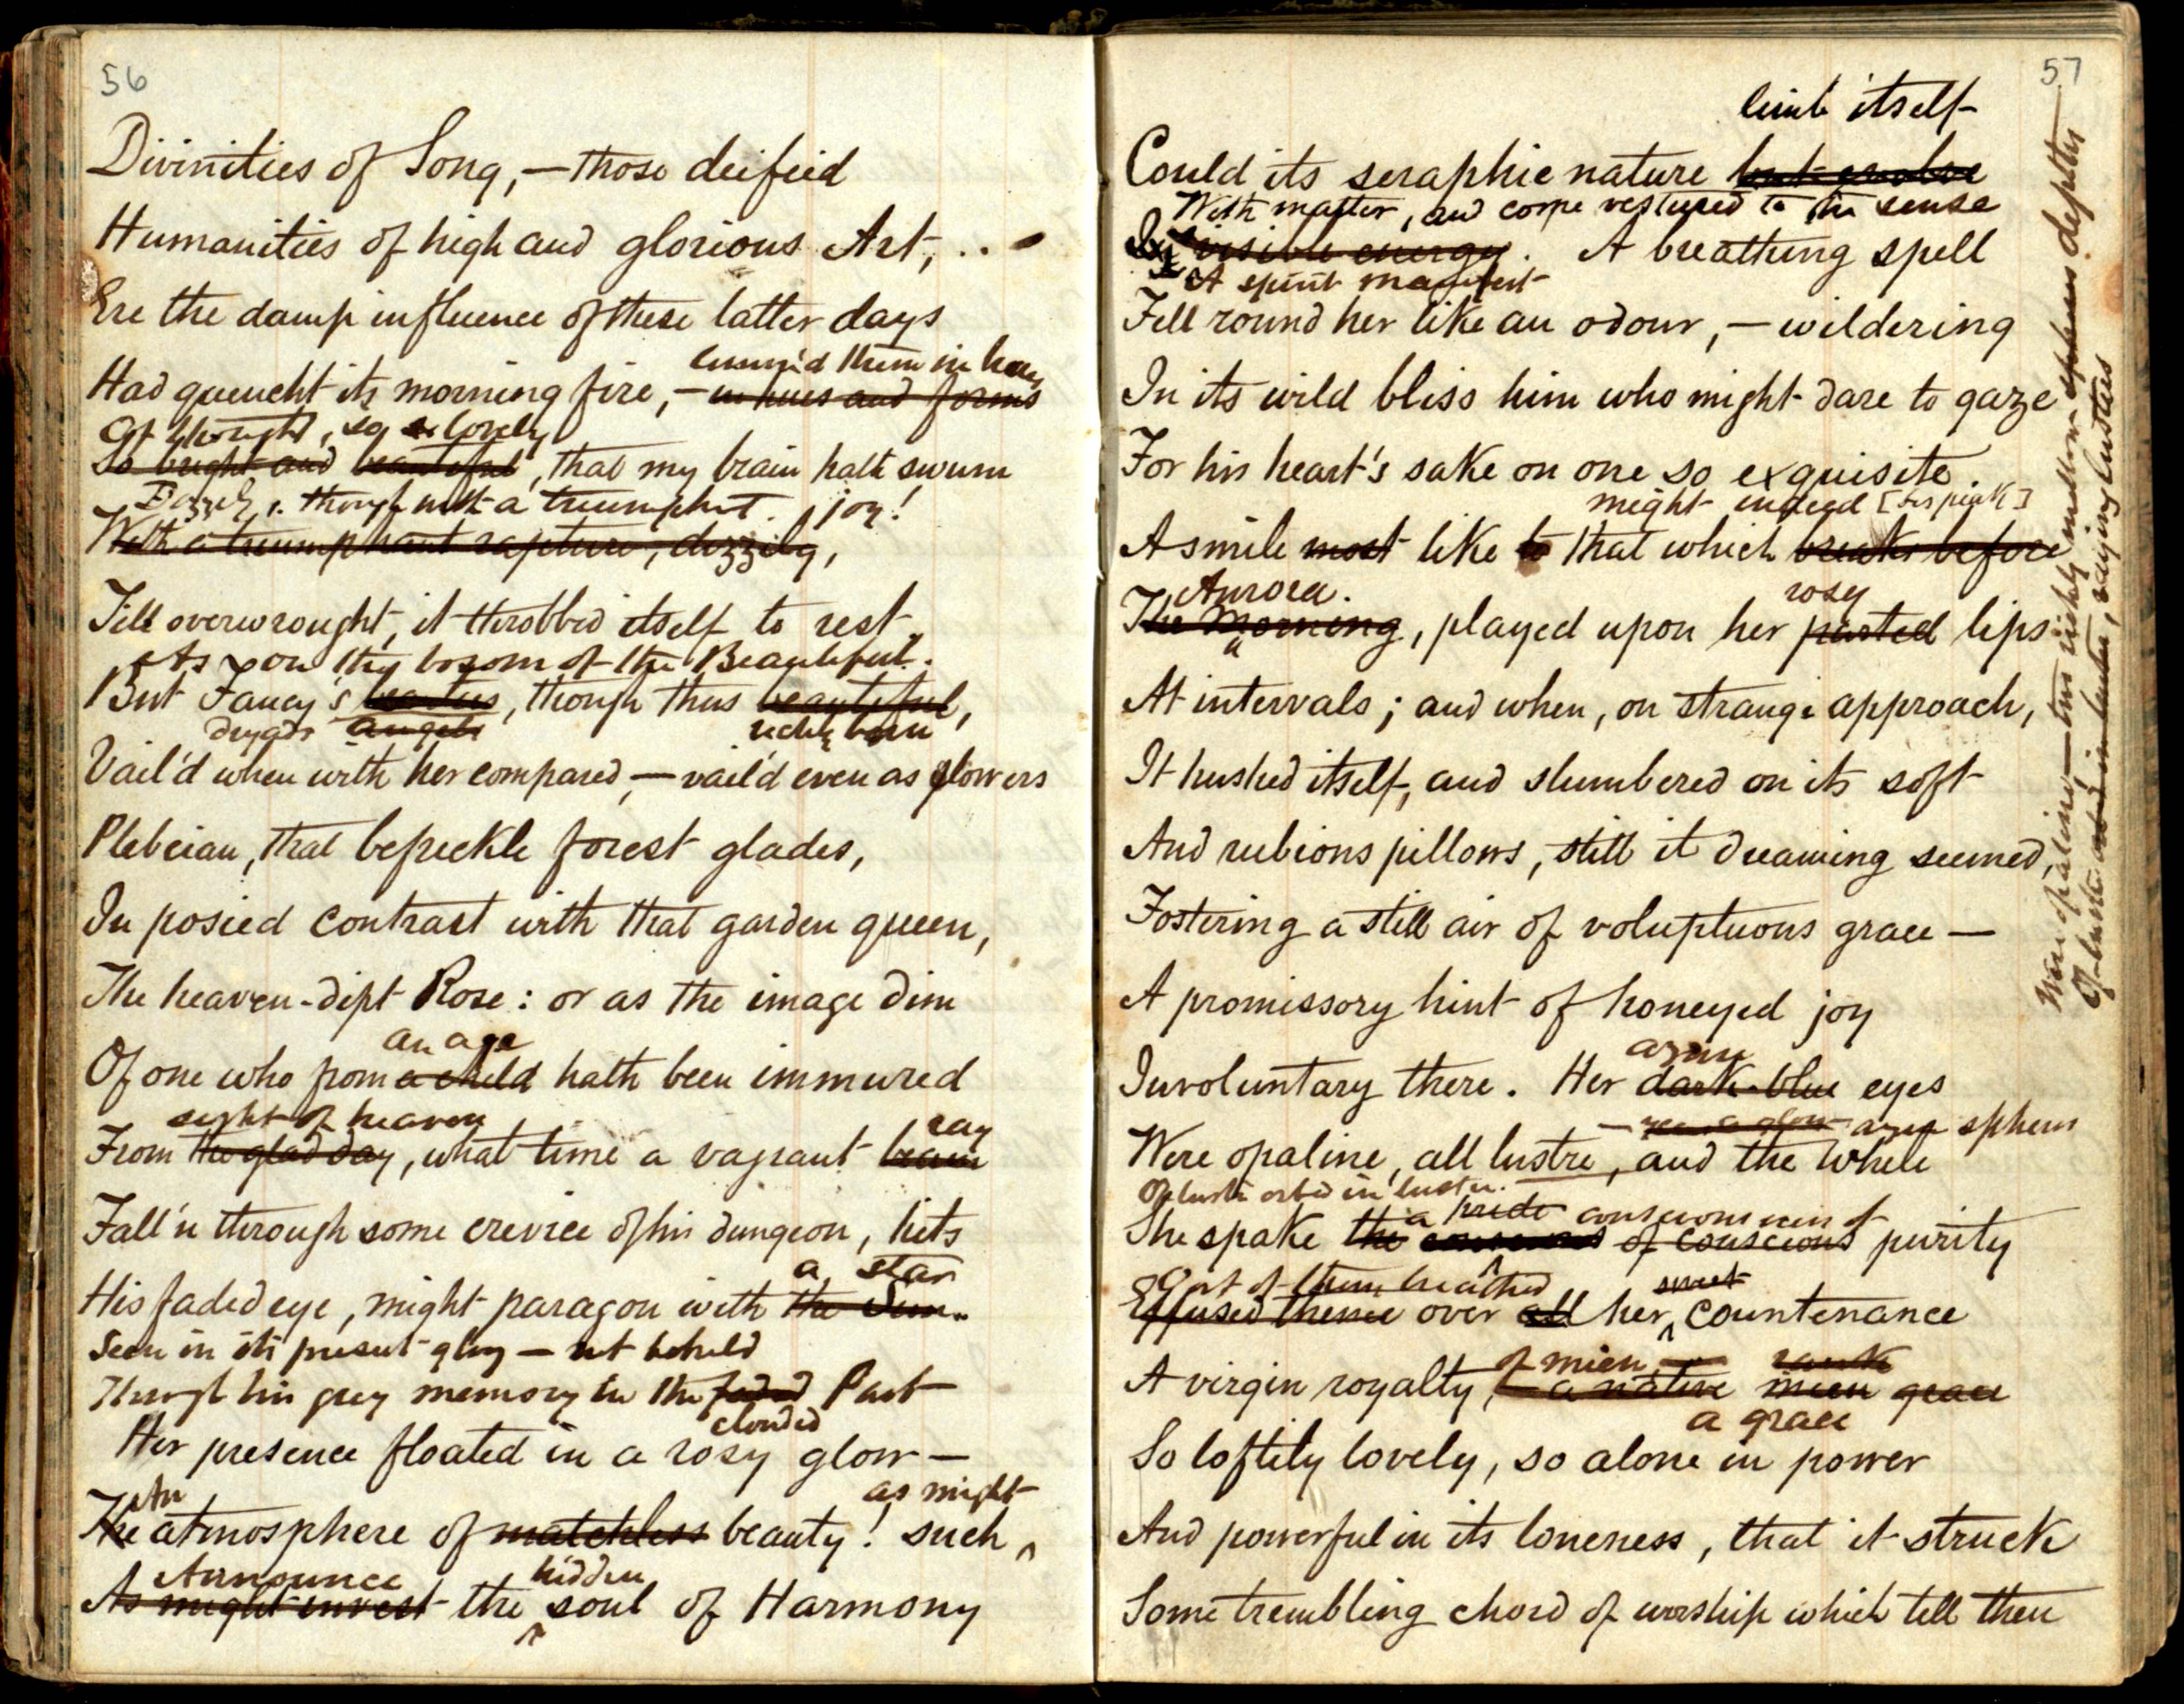 56
Divinities of Song, — those deified
Humanities of high and glorious Art, . .
Ere the damp influence of these latter days
limn'd them in hues
Had quencht its morning fire, — in hues and forms
Of thought, so lovely
So bright and beautiful, that my brain hath swum
Dizzily, though with a triumphant joy!
With a triumphant rapture, dizzily,
Till overwrought, it throbbed itself to rest
As on the bosom of the Beautiful.
But Fancy's, though thus beautiful,
dryads angels richly born
Vail'd when with her compared, — vail'd even as flowers
Plebeian, that befreckle forest glades,
In posied contrast with that garden queen,
The heaven-dipt Rose: or as the image dim
an age
Of one who from a child hath been immured
sight of heaven ray
From the glad day, what time a vagrant beam
Fall'n through some crevice of his dungeon, hits
a star
His faded eye, might paragon with the Sun.
Seen in its present glory — not beheld
Through his grey memory in the faded Past
clouded
Her presence floated in a rosy glow —
An as might
The atmosphere of matchless beauty! such
Announce hidden
As might invest the soul of Harmony
57
limb itself
Could its seraphic nature but evolve
With matter, and come vestured to the sense
visible energy. A breathing spell
A spirit manifest
Fell round her like an odour, — wildering
In its wild bliss him who might dare to gaze
For his heart's sake on one so exquisite.
might indeed [bespeak]
A smile most like to that which breaks before
Aurora. rosy
The Morning, played upon her parted lips
At intervals; and when, on strange approach,
It hushed itself, and slumbered on its soft
And rubious pillows, still it dreaming seemed,
Fostering a still air of voluptuous grace —
A promissory hint of honeyed joy
azure
Involuntary there. Her dark-blue eyes
— azure spheres
Were opaline, all lustre, and the while
Of lustre orbed in lustre.
a pride consciousness of
She spake the conscious of conscious purity
Part of them breathed sweet
Effused thence over all her countenance
of mien — rank
A virgin royalty, — a native mien grace
a grace
So loftily lovely, so alone in power
And powerful in its loneness, that it struck
Some trembling chord of worship which tell then
Were opaline — two richly mellow spheres depths
Of lustre orbed in lustre, raying lustres